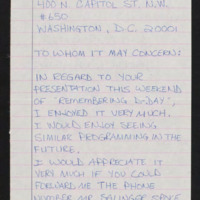 400 N. CAPITOL ST. N.W.
#650
WASHINGTON, D.C. 20001
TO WHOM IT MAY CONCERN:
IN REGARD TO YOUR
PRESENTATION THIS WEEKEND
OF "REMEMBERING D-DAY",
I ENJOYED IT VERY MUCH.
I WOULD ENJOY SEEING
SIMILAR PROGRAMMING IN THE
FUTURE.
I WOULD APPRECIATE IT
VERY MUCH IF YOU COULD
FORWARD ME THE PHONE
NUMBER MR. SALINGER SPOKE